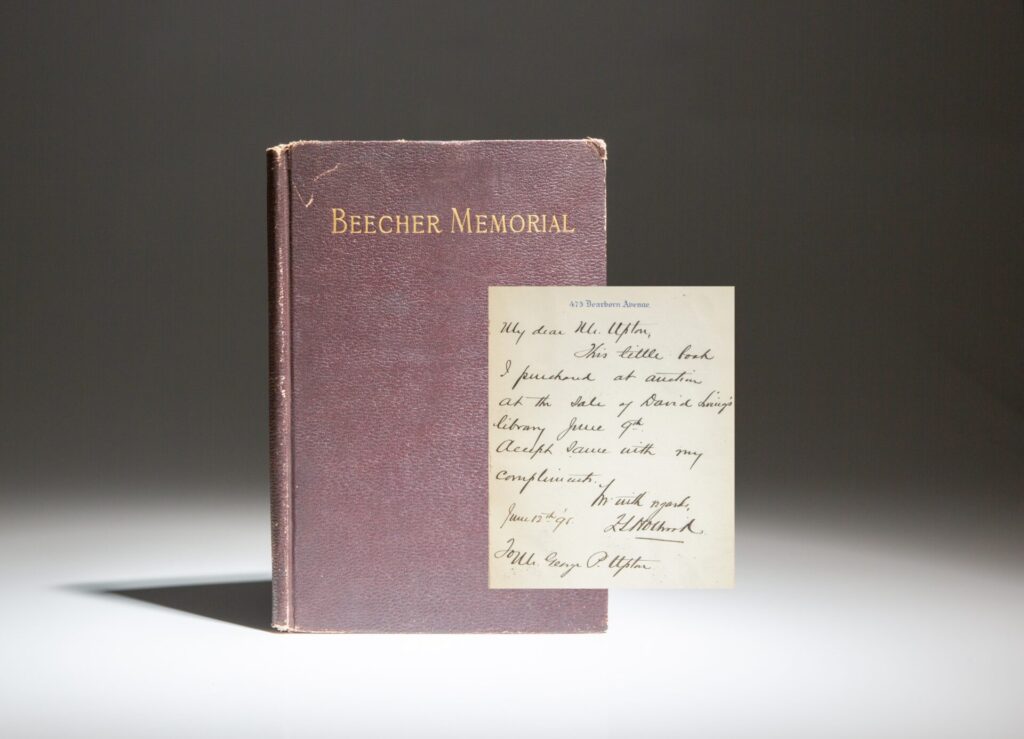 BEECHER MEMORIAL
473 Dearborn Avenue.
My dear Mr. Upton,
This little book
I purchased at auction
at the sale of David
library June 9th.
Accept same with my
compliments.
with regards,
June 12th '95.
To Mr. George P. Upton